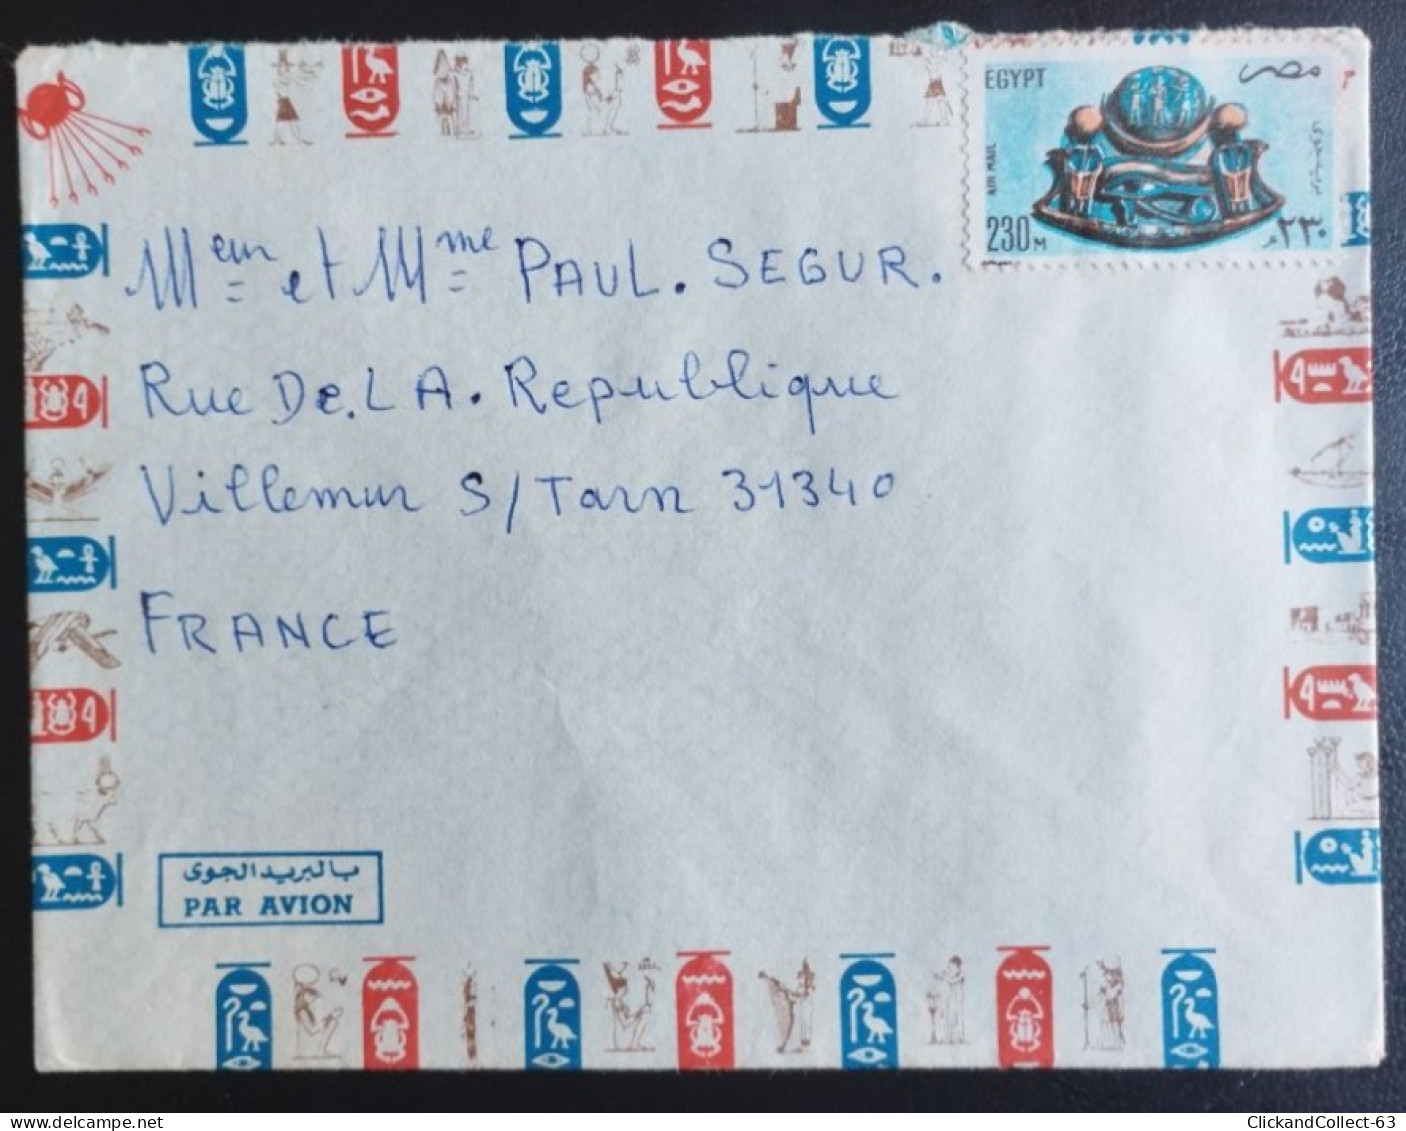 EGYPT مصر
AIR MAIL
230 M ٢٣٠ م
Meur et Mme PAUL. SEGUR.
Rue De.LA. Republique
Villemur S/Tarn 31340
FRANCE
بالبريد الجوى
PAR AVION
ClickandCollect-63